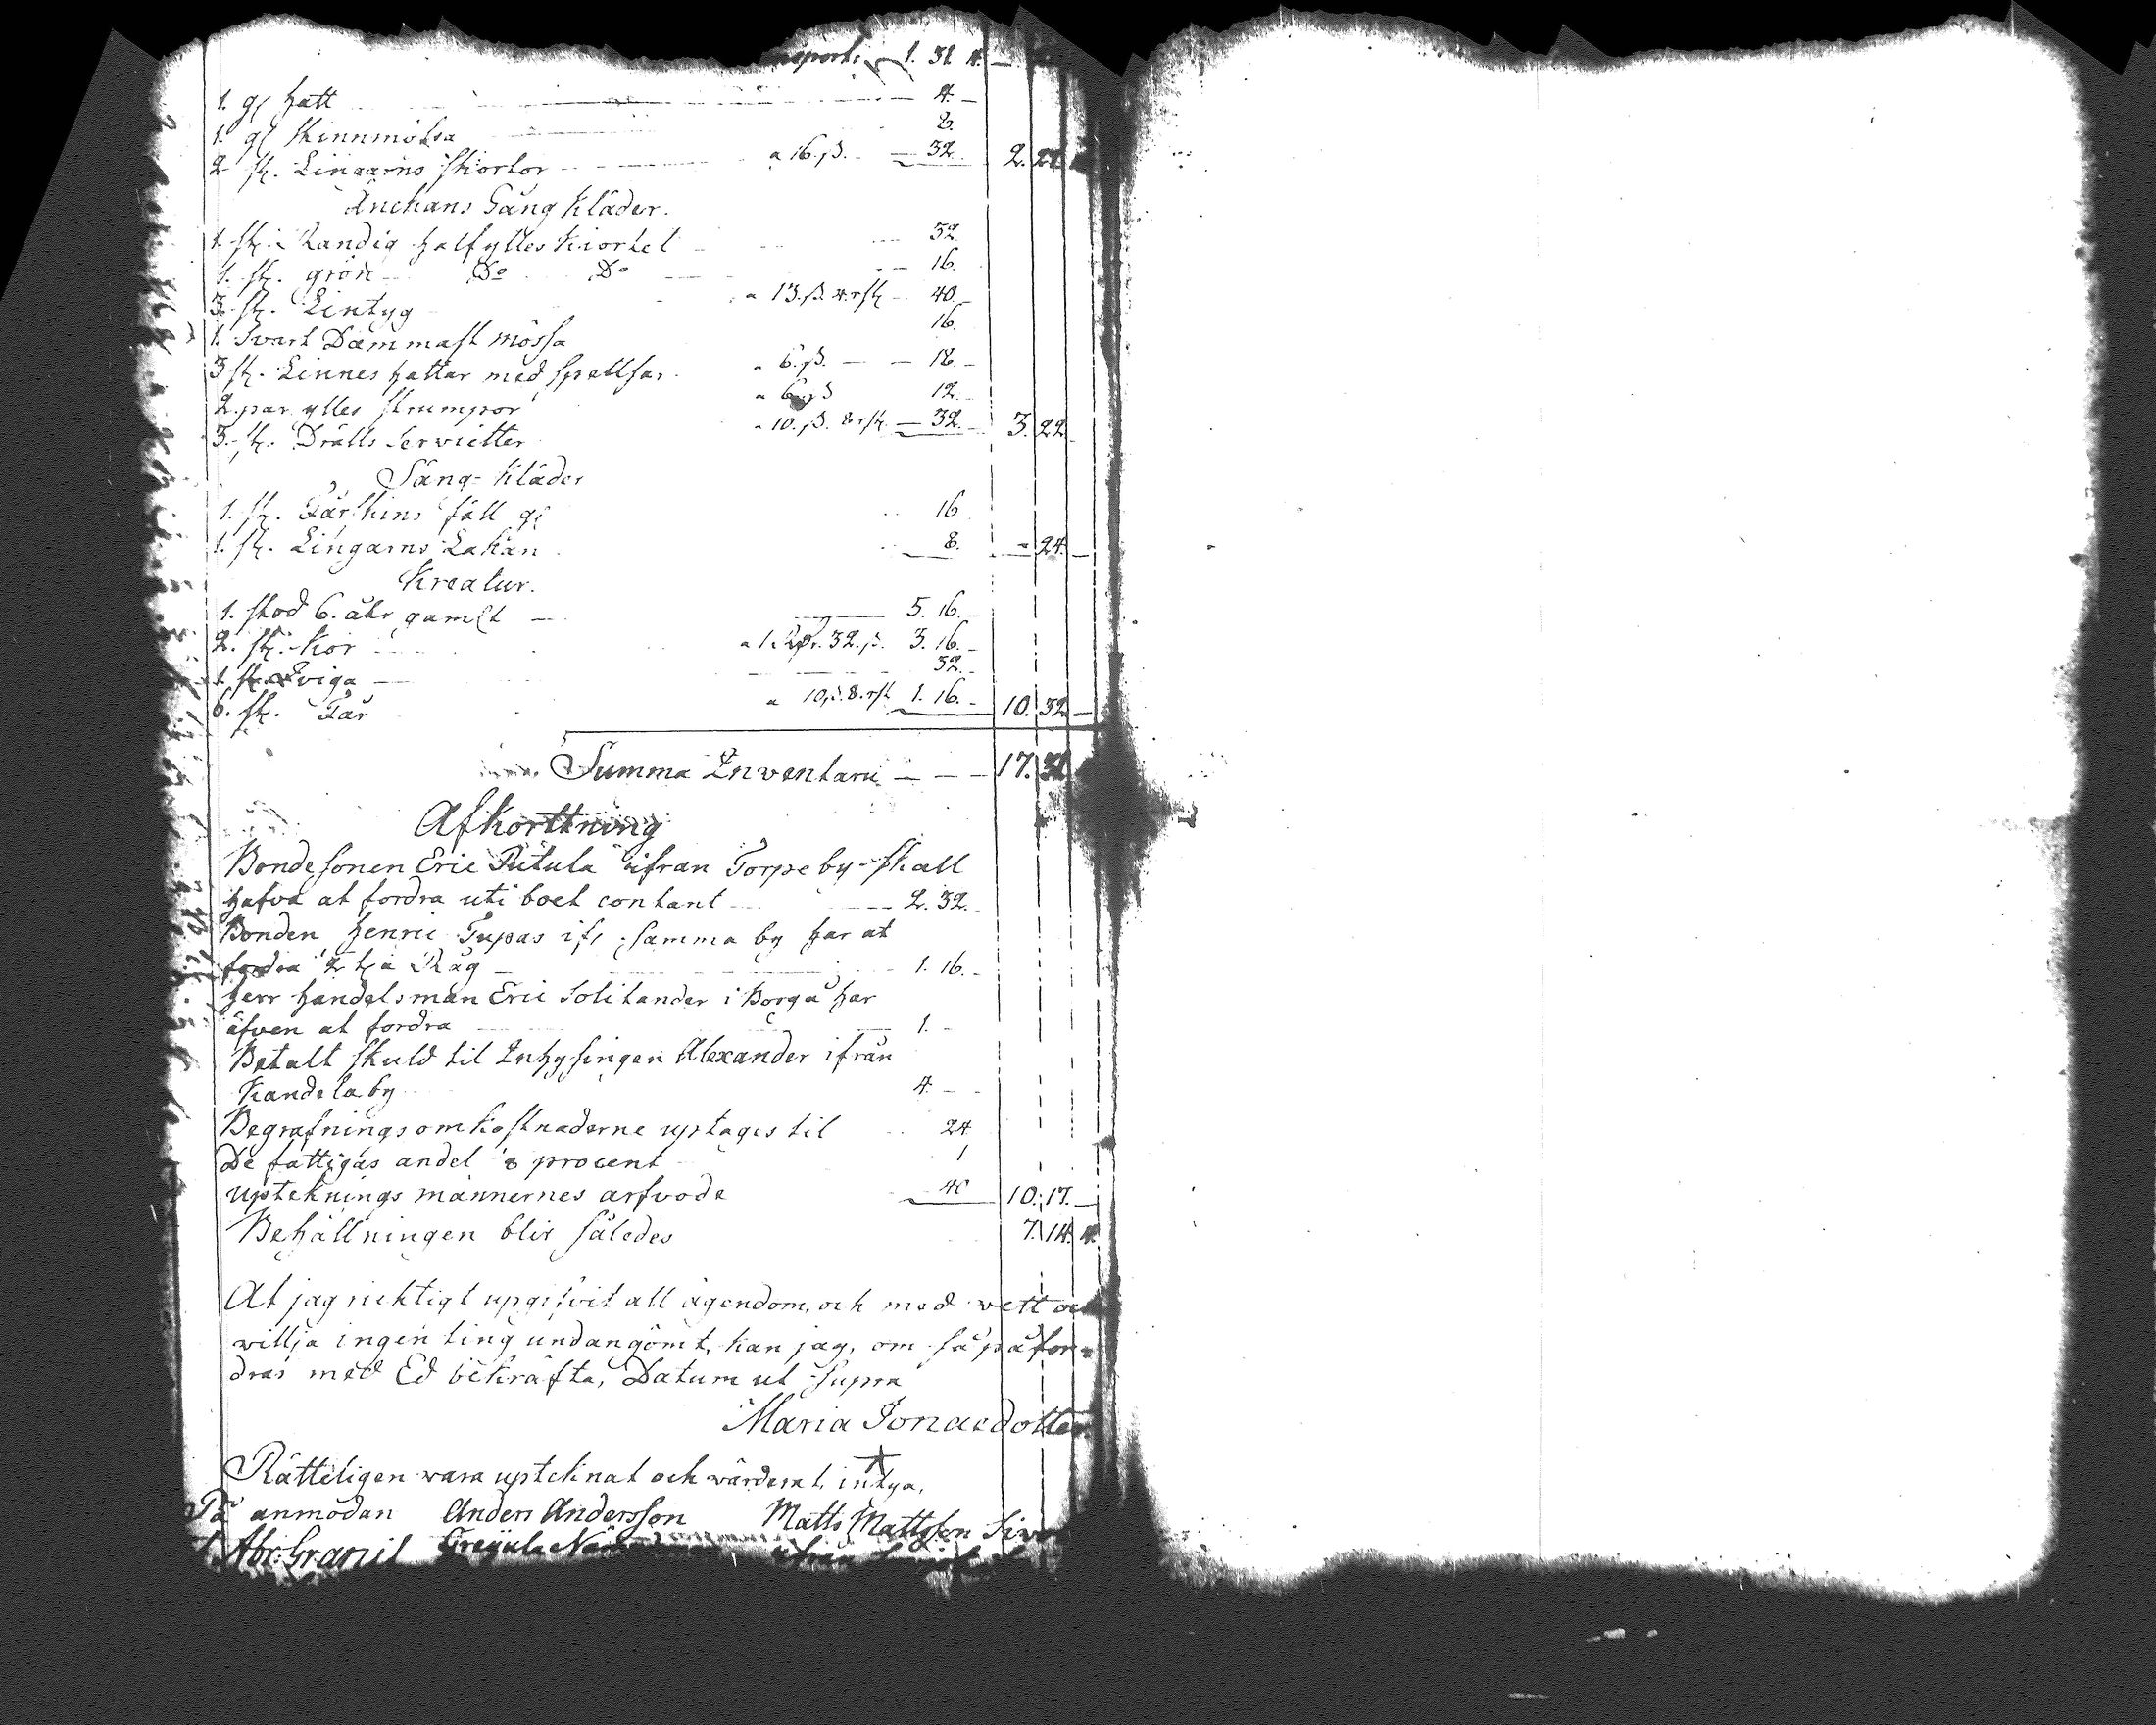 1. 31. 4. —
1. gl hatt — 4. —
1. gl Skinnmössa 8.
2 st. Lingarns Skiortor a 16.ß. — 32. 2. 27
Änckans Gång Kläder.
1. st. Randig halfylles Kiortel 32.
1. st. grön Do Do 16.
3. st. Lintyg a 13.ß.4.r st — 40.
1. Svart Dammast mössa 16.
3 st. Linnes hattar med spettsar a 6.ß. — 18. —
2. par ylles strumpor a 6.ß 12.
3. st. Drälls Servietter a 10.ß. 8 r st. — 32. 3. 22
Säng-Kläder
1. st. Fårskins fäll gl 16
1. st. Lingarns Lakan 8. - 24. —
Kreatur.
1. stod 6. åhr gamlt — 5. 16. —
2. st. Kor a 1. Rdr. 32.ß. 3. 16. —
1. st. Qviga — 32. —
6. st. Får a 10.ß.8.r st 1. 16. - 10. 32 —
Summa Inventarii — — — 17. 31
Afkorttning
Bondesonen Eric Pitula ifrån Torpeby skall
hafva at fordra uti boet contant — 2. 32.
Bonden henric Tupas ifr samma by har at
fordra 2 Råg — 1. 16. —
herr handelsman Eric Solitander i Borgå har
äfven at fordra — 1. —
Betalt skuld til Inhysingen Alexander ifrån
Kandelaby 4. —
Begrafnings omkostnaderne uptages til 24
De fattigas andel 8 procent 1
upteknings männernes arfvode 40 10. 17. —
Behållningen blir således 7. 14. 4.
At jag riktigt upgifvit all ägendom, och med vett och
willja ingen ting undangömt, kan jag, om så påfor-
dras med Ed bekräfta, Datum ut Supra
Maria Jonasdotter
Rätteligen vara uptecknat och värderat, intyga,
På anmodan Anders Andersson Matts Mattsson
Abr: Granit